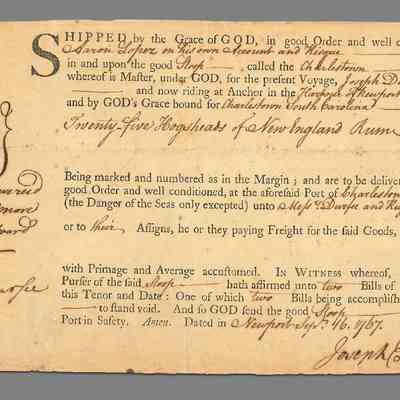 SHIPPED by the Grace of GOD, in good Order and well c
Aaron Lopez on his own Account and Risque
in and upon the good Sloop called the Charlestown
whereof is Master, under GOD, for the present Voyage, Joseph D
and now riding at Anchor in the Harbour of Newport
and by GOD's Grace bound for Charlestown South Carolina
Twenty-five Hogsheads of New England Rum
Being marked and numbered as in the Margin; and are to be deliver
good Order and well conditioned, at the aforesaid Port of Charlestown
(the Danger of the Seas only excepted) unto Messrs Durfee and
or to their Assigns, he or they paying Freight for the said Goods,
with Primage and Average accustomed. IN WITNESS whereof,
Purser of the said Sloop hath affirmed unto two Bills of
this Tenor and Date: One of which two Bills being accomplish
to stand void. And so GOD send the good Sloop
Port in Safety. Amen. Dated in Newport Sepr. 16. 1767.
Joseph